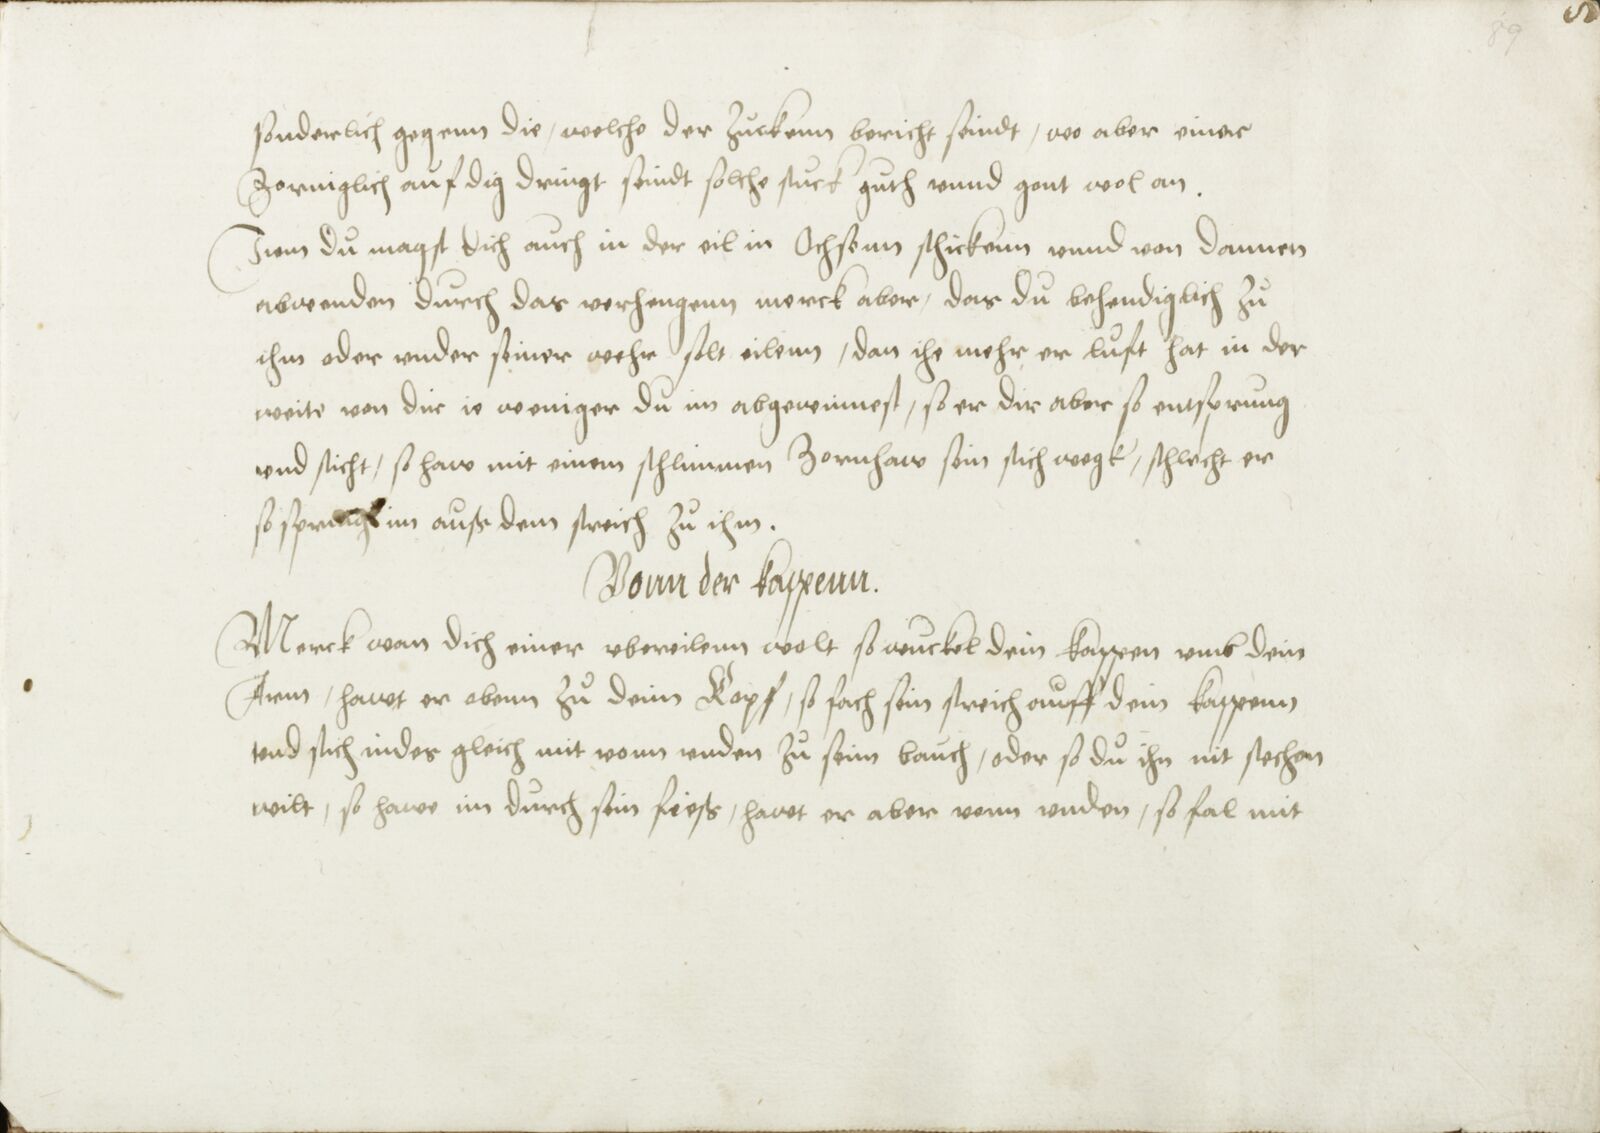 89
sonderlich gegenn die / welche der zuckenn bericht seindt / wo aber einer
Zorniglich auf dig dringt seindt solche stuck guth vnnd gont wol an.
Item du magst dich auch in der eil in Ochsenn schickenn vnnd von dannen
abwenden durch das verhengenn merck aber / das du behendiglich zu
ihm oder vnder seiner wehr solt eilenn / dan ihe mehr er luft hat in der
weite von dir ie weniger du im abgewinnest / so er dir aber so entsprung
vnd sticht / so haw mit einem schlimmen Zornhaw sein stich wegk / schlecht er
so spring im auss dem streich zu ihm.
Vonn der kappenn.
Merck wan dich einer vbereilenn wolt so wuckel dein kappen vmb dein
Arm / hawt er obenn zu deim Kopf / so fach sein streich auff dein kappenn
vnd stich indes gleich mit vonn vnden zu seim bauch / oder so du ihn nit stechen
wilt / so hawe im durch sein fiess / hawt er aber vonn vnden / so fal mit